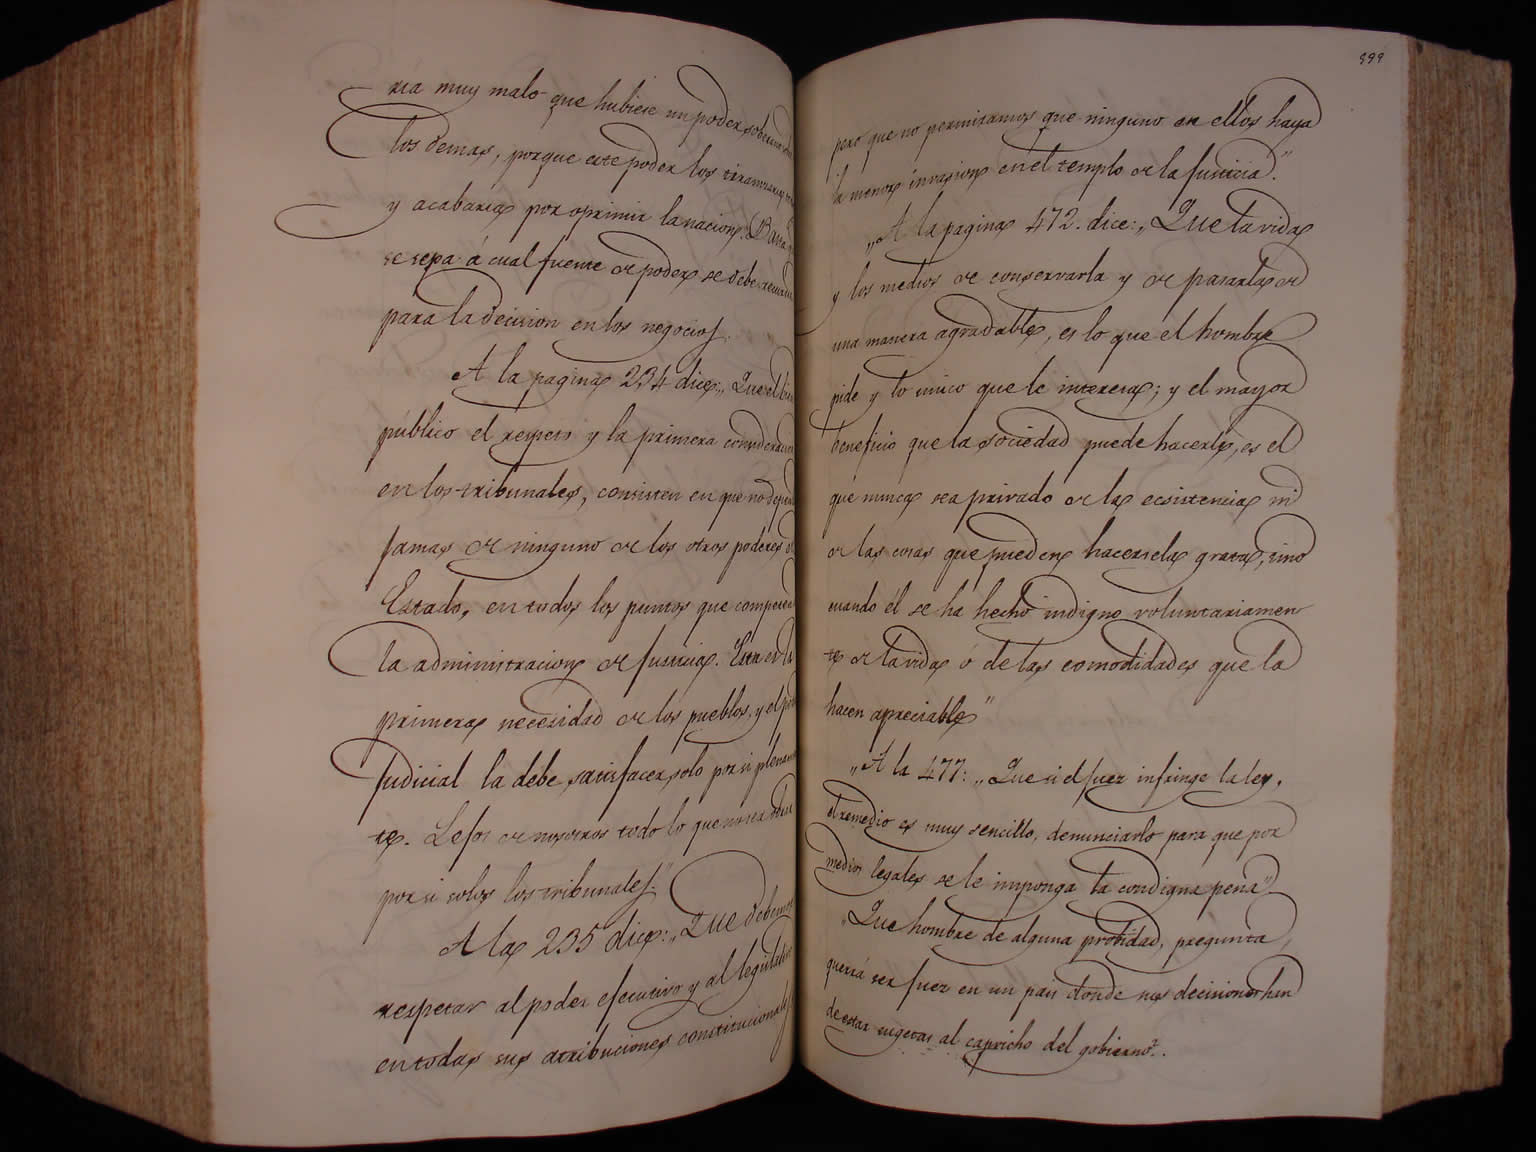 ria muy malo que hubiese un poder soberano
los demas, porque este poder los tiranizaria
y acabaria por oprimir la nacion. Basta
se sepa á cual fuente de poder se debe
para la decision en los negocios.
A la pagina 234 dice: „Que el bien
público el respeto y la primera consideracion
en los tribunales, consisten en que no dependan
jamas de ninguno de los otros poderes del
Estado, en todos los puntos que competen
la administracion de justicia. Esta es la
primera necesidad de los pueblos, y el poder
judicial la debe satisfacer solo por si plenamen
te. Lejos de nosotros todo lo que no sea
por si solos los tribunales."
A la 235 dice: „Que debemos
respetar al poder ejecutivo y al legislativo
en todas sus atribuciones constitucionales
999
pero que no permitamos que ninguno en ellos haga
la menor invasion en el templo de la justicia."
„A la pagina 472. dice: „Que la vida
y los medios de conservarla y de pasarla de
una manera agradable, es lo que el hombre
pide y lo unico que le interesa; y el mayor
beneficio que la sociedad puede hacerle, es el
que nunca sea privado de la ecsistencia ni
de las cosas que pueden hacersela grata, sino
cuando él se ha hecho indigno voluntariamen
te de la vida ó de las comodidades que la
hacen apreciable"
„A la 477: „Que si el juez infringe la ley,
el remedio es muy sencillo, denunciarlo para que por
medios legales se le imponga la condigna pena"
„Que hombre de alguna probidad, pregunta,
querrá ser juez en un pais donde sus decisiones han
de estar sugetas al capricho del gobierno?.